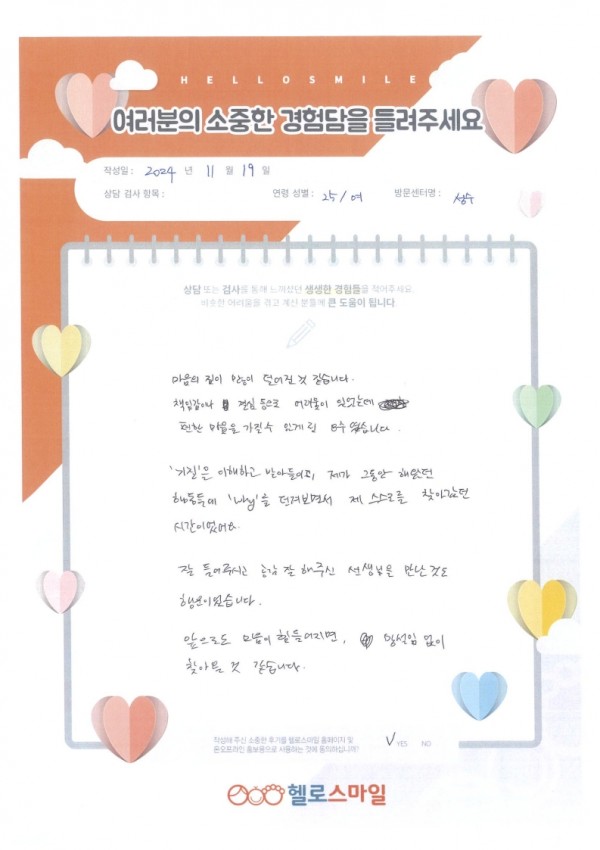 HELLOSMILE
여러분의 소중한 경험담을 들려주세요
작성일 : 2024 년 11 월 19 일
상담 검사 항목 : 연령 성별 : 25/여 방문센터명 : 성수
상담 또는 검사를 통해 느끼셨던 생생한 경험들을 적어주세요.
비슷한 어려움을 겪고 계신 분들께 큰 도움이 됩니다.
마음의 짐이 많이 덜어진 것 같습니다.
책임감이나 등으로 어려움이 있었는데
편한 마음을 가질 수 있게 된
'기질'을 이해하고 받아들이고, 제가 그동안 해왔던
행동들에 '나님'을 던져보면서 제 스스로를 찾아갔던
시간이었어요.
잘 들어주시고 공감 잘 해주신 선생님을 만난 것도
행운이었습니다.
앞으로도 마음이 힘들어지면, 망설임 없이
찾아올 것 같습니다.
작성해 주신 소중한 후기를 헬로스마일 홈페이지 및
온오프라인 홍보용으로 사용하는 것에 동의하십니까?
V YES NO
헬로스마일